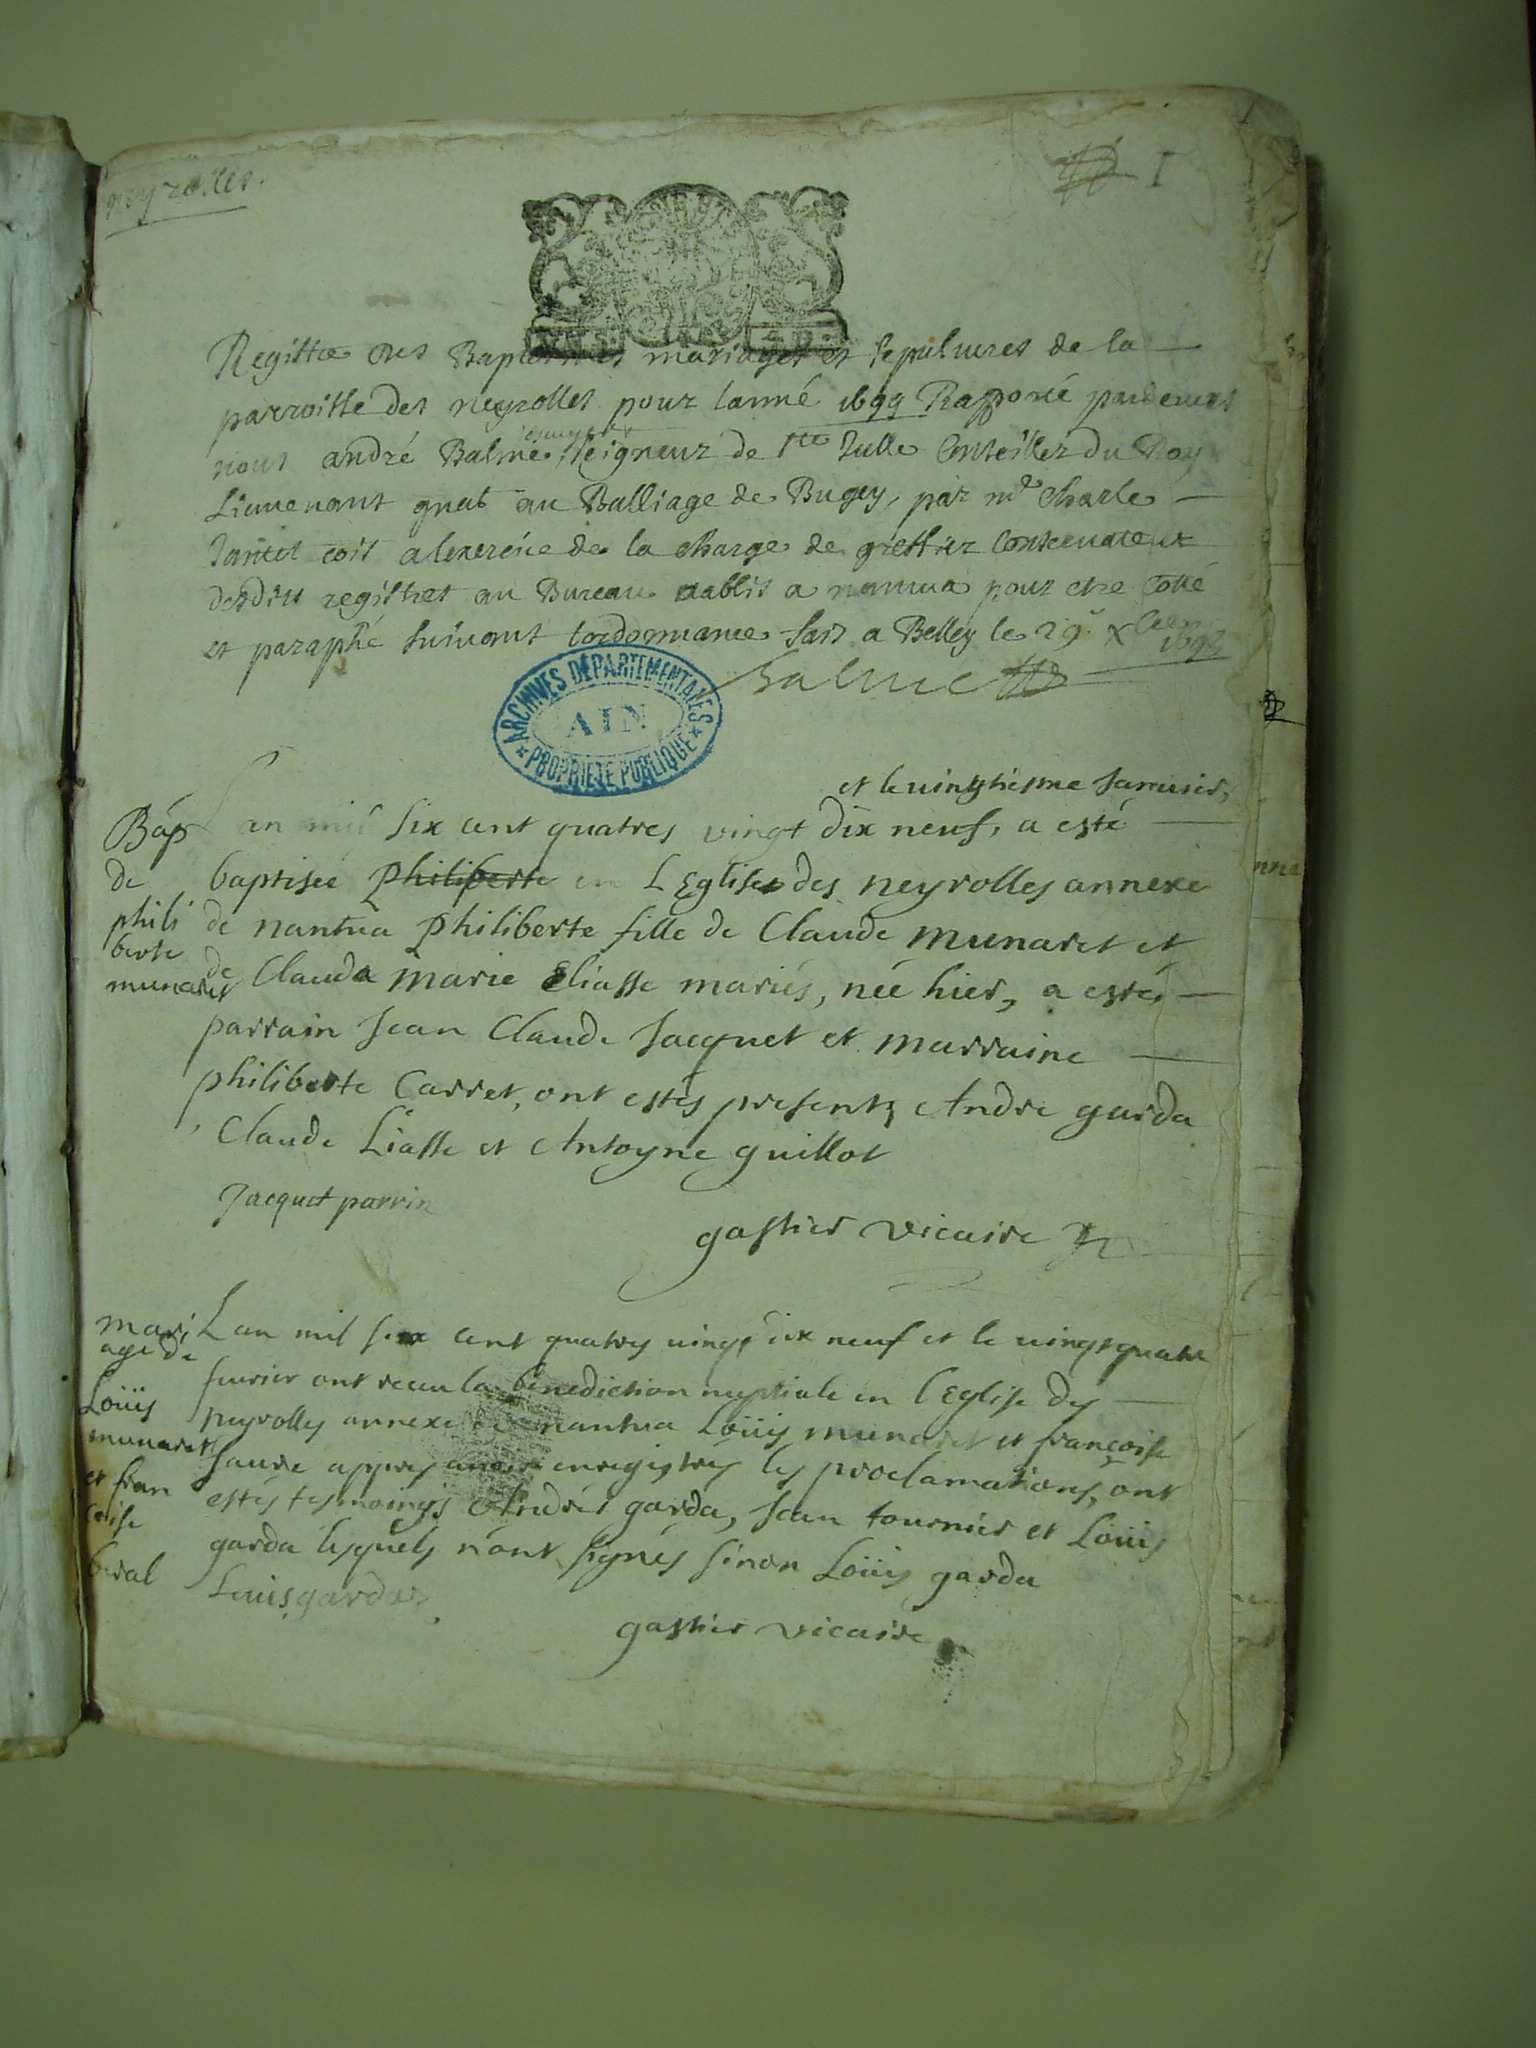 neyrolles.
I
Registre des Baptesmes mariages et sepulures de la
parroisse des neyrolles pour lanné 1699 Rapporté pardevant
nous andré Balme, seigneur de Ste Julle Conseiller du Roy
Lieuenant gnal au Balliage de Bugey, par me Charle
commis a lexercice de la charge de greffier Conservateur
desdits registres au Bureau establis a nantua pour etre Cotté
et paraphé suivant lordonnance fait a Belley le 29e Xbre 1698
Balme
ARCHIVES DÉPARTEMENTALES
AIN
PROPRIÉTÉ PUBLIQUE
et le vingtiesme Januier,
Bap
Lan mil six cent quatres vingt dix neuf, a esté
de
baptisée Philiberte en L Eglise des neyrolles annexe
phili
de nantua Philiberte fille de Claude munaret et
berte
munaret
de Clauda marie Eliasse mariés, née hier, a esté
parrain Jean Claude Jacquet et marraine
philiberte Carret, ont estés presents Andre garda
Claude Liasse et Antoyne guillot
Jacquet parrin
gastier vicaire
mari
age de
Loüis
munaret
et fran
coise
Lan mil six cent quatres vingt dix neuf et le vingt quatre
feurier ont receu la benediction nuptiale en l Eglise des
neyrolles annexe de nantua Loüis munaret et françoise
appres auoir enregistrés les proclamations, ont
estés tesmoings Andrés garda, Jean tournier et Loüis
garda lesquels n'ont signés sinon Loüis garda
Louis garda
gastier vicaire